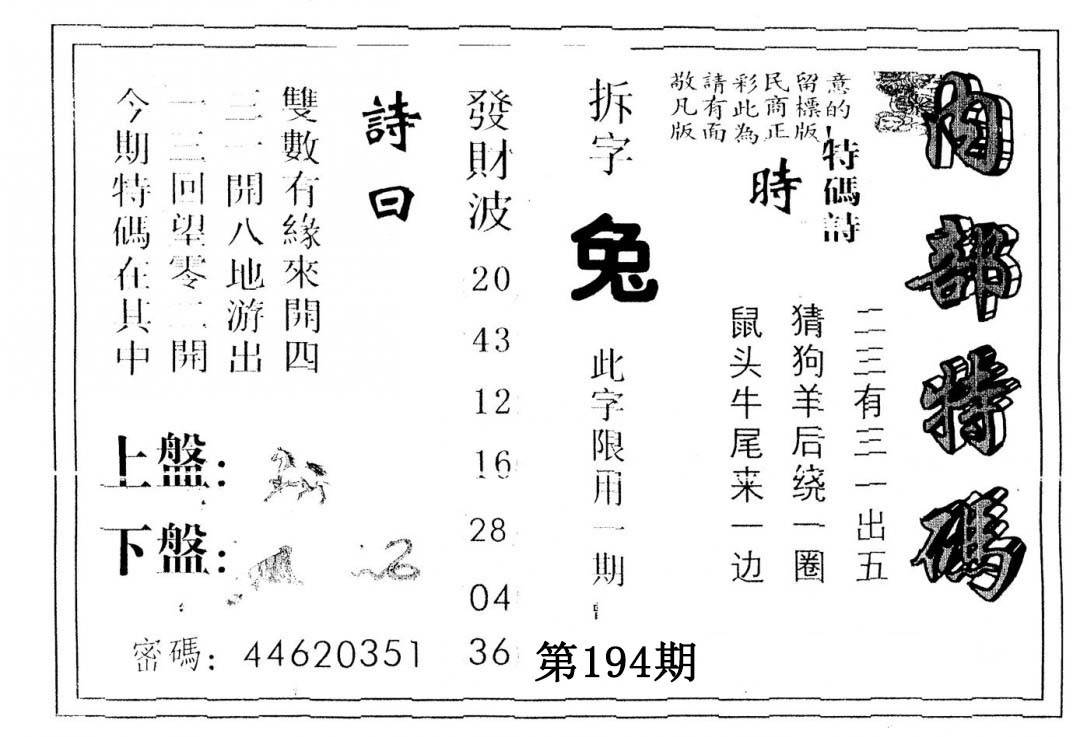 内部特碼
意的
留標版
民商正
彩此為
請有面
敬凡版
特碼詩
時
二三有三一出五
猜狗羊后绕一圈
鼠头牛尾来一边
拆字
兔
此字限用一期
發財波
20
43
12
16
28
04
36
詩曰
雙數有緣來開四
三一開八地游出
一三回望零二開
今期特碼在其中
上盤:
下盤:
密碼: 44620351
第194期